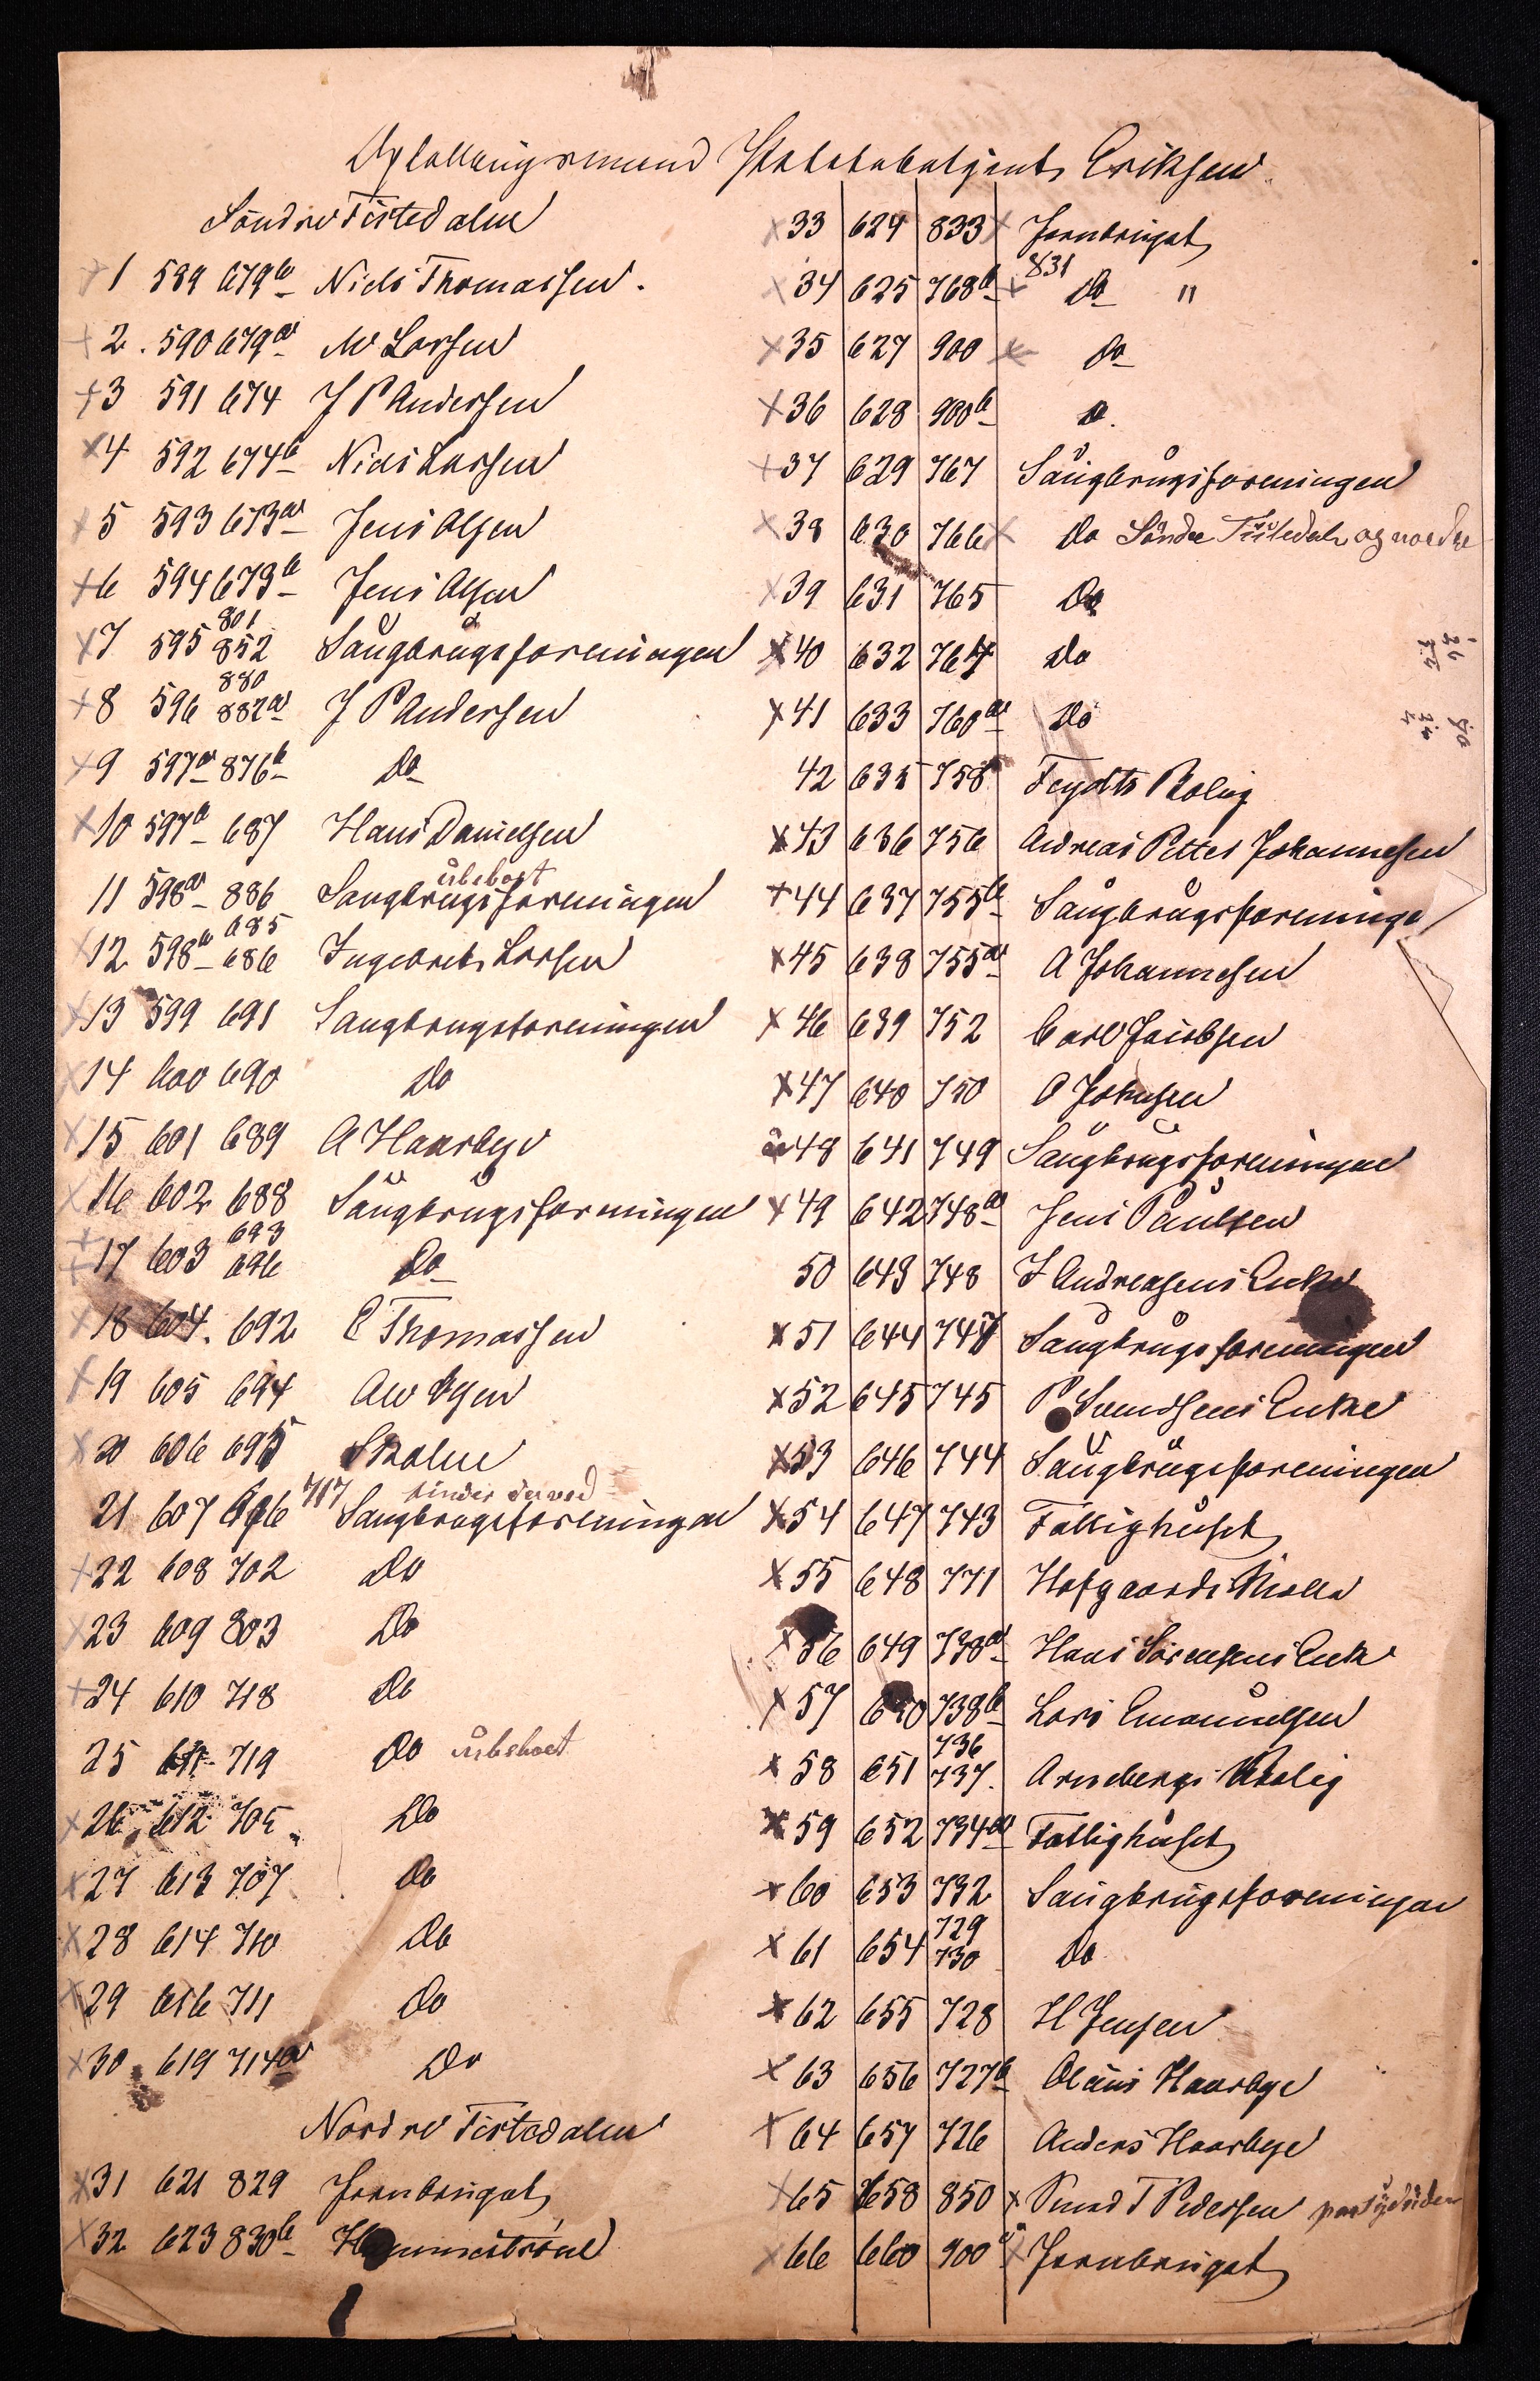 Optællingsmand Stadsbetjent Eriksen
Søndre Tistedalen
x 1 589 679b Niels Thomassen.
x 2. 590 679a M Larsen
x 3 591 674 J P Andersen
x 4 592 674b Niels Larsen
x 5 593 673a Jens Olsen
x 6 594 673b Jens Olsen
801
x 7 595 852 Saugbrugsforeningen
880
x 8 596 882a J P Andersen
x 9 597a 876b Do
x 10 597b 687 Hans Danielsen
ubeboet
11 598a 886 Saugbrugsforeningen
685
x 12 598b 686 Ingebret Larsen
x 13 599 691 Saugbrugsforeningen
x 14 600 690 Do
x 15 601 689 A Haarbye
x 16 602 688 Saugbrugsforeningen
693
x 17 603 696 Do
x 18 604. 692 E Thomassen
x 19 605 694 Olsen
x 20 606 695 Skolen
717
21 607 Saugbrugsforeningen
x 22 608 702 Do
x 23 609 803 Do
x 24 610 718 Do
25 611 719 Do ubeboet
x 26 612 705 Do
x 27 613 707 Do
x 28 614 710 Do
x 29 616 711 Do
x 30 619 714a Do
Nordre Tistedalen
x 31 621 829 Jernbruget
x 32 623 830b
x 33 624 833 x Jernbruget
831
x 34 625 768b x Do "
x 35 627 900 x Do
x 36 628 900b Do.
x 37 629 767 Saugbrugsforeningen
x 38 630 766 x Do Söndre Tistedals og nordre
x 39 631 765 Do
x 40 632 764 Do
x 41 633 760a Do
42 635 758 Feydts Bolig
x 43 636 756 Andreas Petter Johannesen
x 44 637 755b Saugbrugsforeninge
x 45 638 755a A Johannesen
x 46 639 752 Carl Jacobsen
x 47 640 750 O Johnsen
48 641 749 Saugbrugsforeningen
x 49 642 748a Jens Paulsen
50 643 748 J Andreasens Enke
x 51 644 747 Saugbrugsforeningen
x 52 645 745 P Svendsens Enke
x 53 646 744 Saugbrugsforeningen
x 54 647 743 Fattighuset
x 55 648 771 Hofgaards Mølle
x 56 649 738a Hans Sørensens Enke
x 57 650 738b Lars Emanuelsen
736
x 58 651 737. Arnebergs Bolig
x 59 652 734a Fattighuset
x 60 653 732 Saugbrugsforeningen
729
x 61 654 730 Do
x 62 655 728 H Jensen
x 63 656 727b Olaus Haarbye
x 64 657 726 Anders Haarbye
x 65 658 850 x Smed T Pedersen paa Sydsiden
x 66 660 900a x Jernbruget